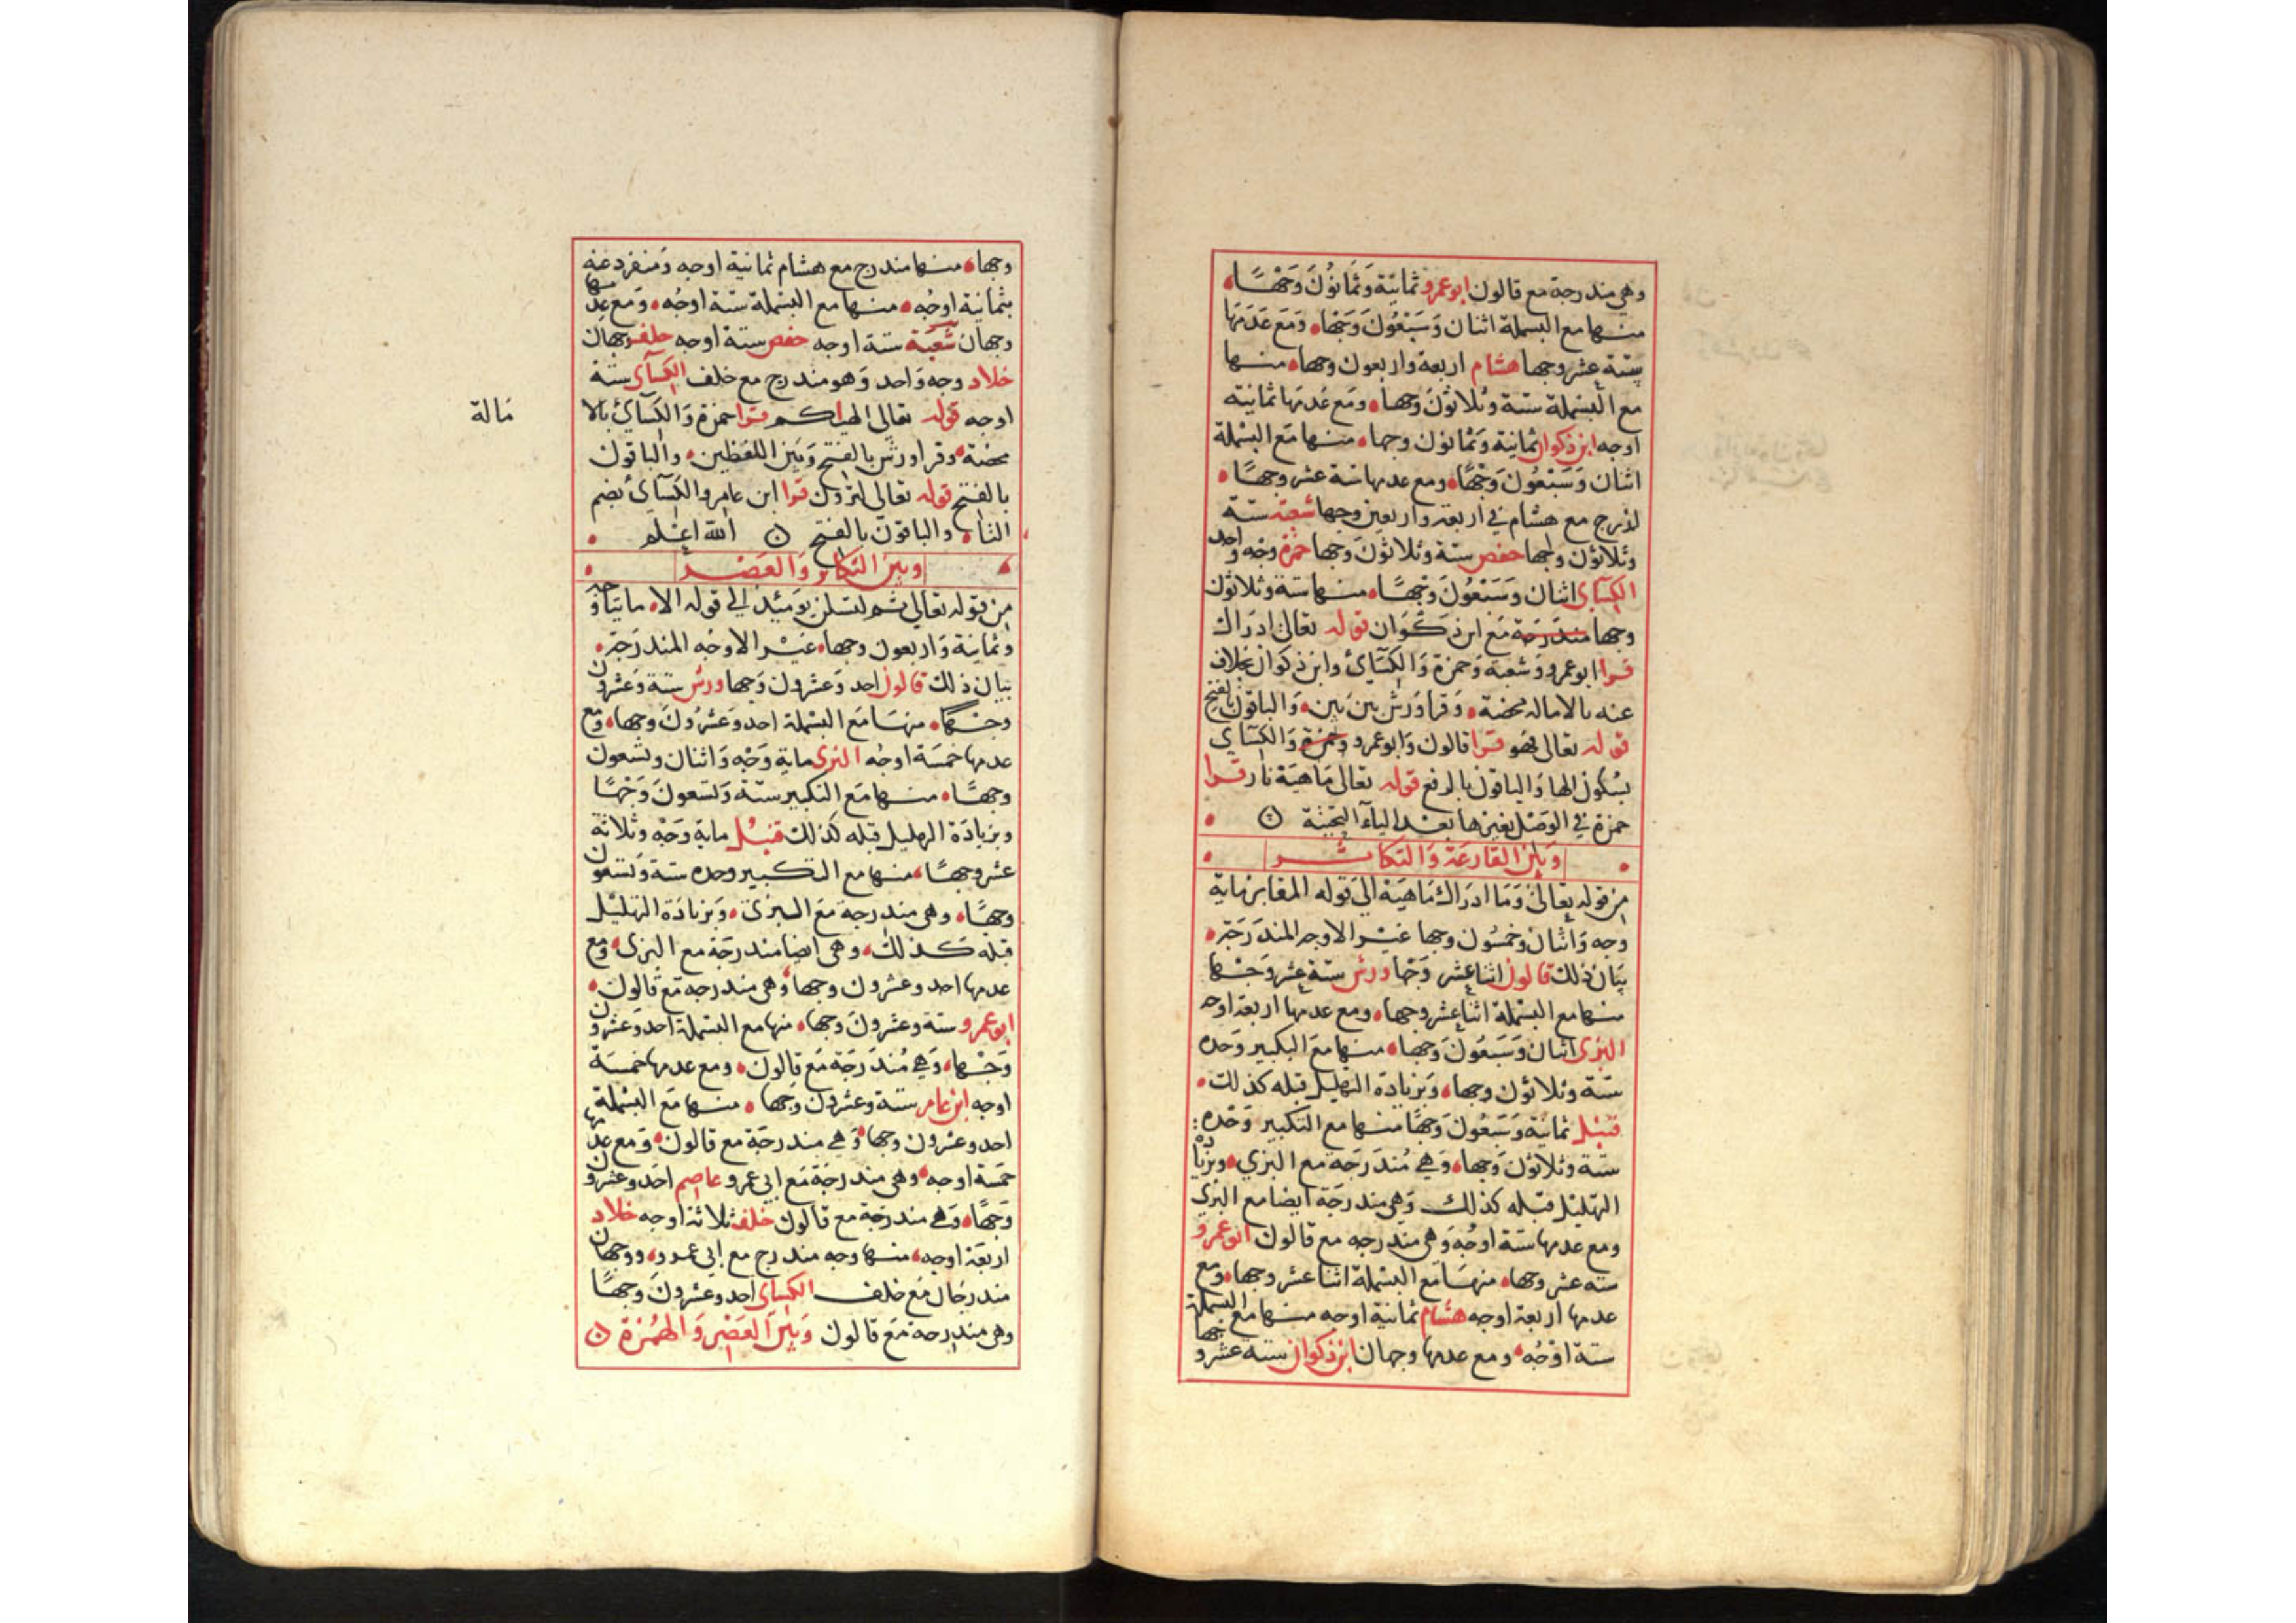 وهي مندرجة مع قالون ابو عمرو ثمانية وثمانون وجها
منها مع البسملة اثنان وسبعون وجها ومع عدمها
ستة عشر وجها هشام اربعة واربعون وجها منها
مع البسملة ستة وثلاثون وجها ومع عدمها ثمانية
اوجه ابن ذكوان ثمانية وثمانون وجها منها مع البسملة
اثنان وسبعون وجها ومع عدمها ستة عشر وجها
اندرج مع هشام في اربعة واربعين وجها شعبة ستة
وثلاثون وجها حفص ستة وثلاثون وجها حمزة وجه واحد
الكسآى اثنان وسبعون وجها منها ستة وثلاثون
وجها مندرجة مع ابن ذكوان قوله تعالى ادراك
قرا ابو عمرو وشعبة وحمزة والكسآئ وابن ذكوان بخلاف
عنه بالامالة محضة وقرا ورش بين بين والباقون بالفتح
قوله تعالى فهو قرا قالون وابو عمرو وحمزة والكسآي
بسكون الها والباقون بالرفع قوله تعالى ماهية نار قرا
حمزة في الوصل بغير ها بعد اليآ التحتية
وبين القارعة والتكاثر
من قوله تعالى وما ادراك ماهية الى قوله المقابر ماية
وجه واثنان وخمسون وجها غير الاوجه المندرجة
بيان ذلك قالون اثنا عشر وجها ورش ستة عشر وجها
منها مع البسملة اثنا عشر وجها ومع عدمها اربعة اوجه
البزى اثنان وسبعون وجها منها مع التكبير وحده
ستة وثلاثون وجها وبزيادة التهليل قبله كذلك
قنبل ثمانية وسبعون وجها منها مع التكبير وحده
ستة وثلاثون وجها وهي مندرجة مع البزي وبزيادة
التهليل قبله كذلك وهي مندرجة ايضا مع البزي
ومع عدمها ستة اوجه وهي مندرجه مع قالون ابو عمرو
سته عشر وجها منها مع البسملة اثنا عشر وجها ومع
عدمها اربعة اوجه هشام ثمانية اوجه منها مع البسملة
ستة اوجه ومع عدمها وجهان ابن ذكوان سته عشر وجها
وجها منها مندرج مع هشام ثمانية اوجه ومنفرد عنه
بثمانية اوجه منها مع البسملة ستة اوجه ومع عدمها
وجهان شعبة ستة اوجه حفص ستة اوجه خلف وجهان
خلاد وجه واحد وهو مندرج مع خلف الكسآى ستة
اوجه قوله تعالى الهياكم قرا حمزة والكسآئ بالا
مالة
محضة وقرا ورش بالفتح وبين اللفظين والباقون
بالفتح قوله تعالى لترون قرا ابن عامر والكسآئ بضم
التا والباقون بالفتح الله اعلم
وبين التكاثر والعصر
من قوله تعالى ثم لتسئلن يومئذ الى قوله الا مايتا وجه
وثمانية واربعون وجها غير الاوجه المندرجة
بيان ذلك قالون احد وعشرون وجها ورش ستة وعشرون
وجها منها مع البسملة احد وعشرون وجها ومع
عدمها خمسة اوجه البزى ماية وجه واثنان وتسعون
وجها منها مع التكبير ستة وتسعون وجها
وبزيادة التهليل قبله كذلك قنبل ماية وجه وثلاثة
عشر وجها منها مع التكبير وحده ستة وتسعون
وجها وهي مندرجة مع البزى وبزيادة التهليل
قبله كذلك وهي ايضا مندرجة مع البزى ومع
عدمها احد وعشرون وجها وهي مندرجه مع قالون
ابو عمرو ستة وعشرون وجها منها مع البسملة احد وعشرون
وجها وهي مندرجة مع قالون ومع عدمها خمسة
اوجه ابن عامر ستة وعشرون وجها منها مع البسملة
احد وعشرون وجها وهي مندرجة مع قالون ومع عدمها
خمسة اوجه وهي مندرجة مع ابي عمرو عاصم احد وعشرون
وجها وهي مندرجة مع قالون خلف ثلاثة اوجه خلاد
اربعة اوجه منها وجه مندرج مع ابي عمرو ووجهان
مندرجان مع خلف الكسآى احد وعشرون وجها
وهي مندرجة مع قالون وبين العصر والهمزة